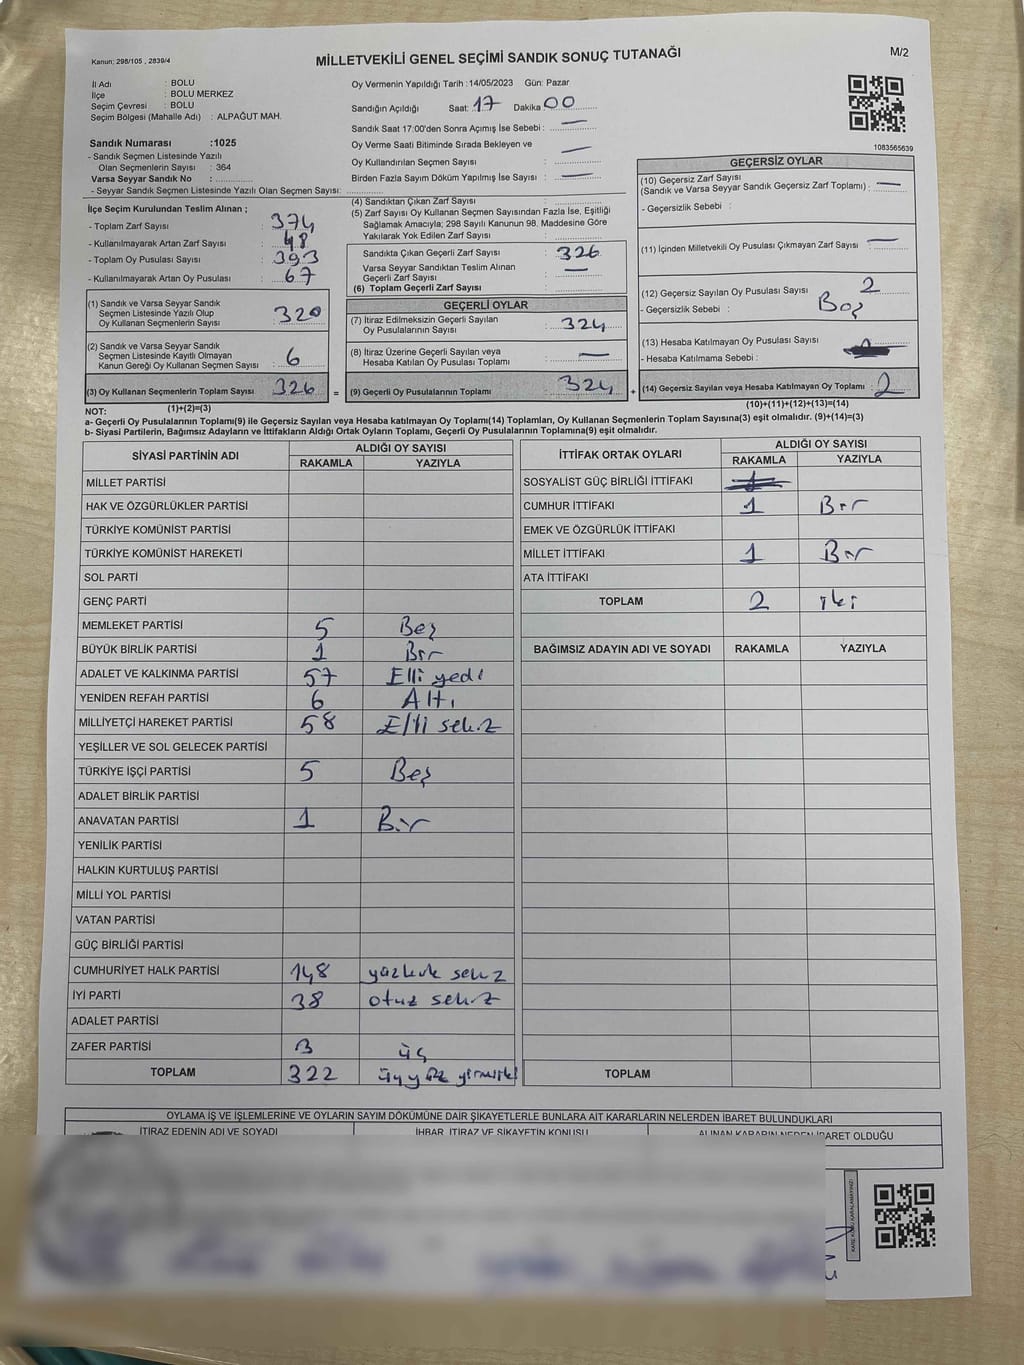 Kanun; 298/105 , 2839/4
MİLLETVEKİLİ GENEL SEÇİMİ SANDIK SONUÇ TUTANAĞI
M/2
İl Adı : BOLU
İlçe : BOLU MERKEZ
Seçim Çevresi : BOLU
Seçim Bölgesi (Mahalle Adı) : ALPAĞUT MAH.
Sandık Numarası :1025
- Sandık Seçmen Listesinde Yazılı
Olan Seçmenlerin Sayısı : 364
Varsa Seyyar Sandık No :
- Seyyar Sandık Seçmen Listesinde Yazılı Olan Seçmen Sayısı:
Oy Vermenin Yapıldığı Tarih :14/05/2023 Gün: Pazar
Sandığın Açıldığı Saat: 17 Dakika 00
Sandık Saat 17:00'den Sonra Açımış İse Sebebi : —
Oy Verme Saati Bitiminde Sırada Bekleyen ve
Oy Kullandırılan Seçmen Sayısı : —
Birden Fazla Sayım Döküm Yapılmış İse Sayısı : —
1083565639
İlçe Seçim Kurulundan Teslim Alınan ;
- Toplam Zarf Sayısı : 374
- Kullanılmayarak Artan Zarf Sayısı : 48
- Toplam Oy Pusulası Sayısı : 393
- Kullanılmayarak Artan Oy Pusulası : 67
(1) Sandık ve Varsa Seyyar Sandık
Seçmen Listesinde Yazılı Olup
Oy Kullanan Seçmenlerin Sayısı : 320
(2) Sandık ve Varsa Seyyar Sandık
Seçmen Listesinde Kayıtlı Olmayan
Kanun Gereği Oy Kullanan Seçmen Sayısı : 6
(3) Oy Kullanan Seçmenlerin Toplam Sayısı : 326 =
(4) Sandıktan Çıkan Zarf Sayısı :
(5) Zarf Sayısı Oy Kullanan Seçmen Sayısından Fazla İse, Eşitliği
Sağlamak Amacıyla; 298 Sayılı Kanunun 98. Maddesine Göre
Yakılarak Yok Edilen Zarf Sayısı :
Sandıkta Çıkan Geçerli Zarf Sayısı : 326
Varsa Seyyar Sandıktan Teslim Alınan
Geçerli Zarf Sayısı : —
(6) Toplam Geçerli Zarf Sayısı :
GEÇERLİ OYLAR
(7) İtiraz Edilmeksizin Geçerli Sayılan
Oy Pusulalarının Sayısı : 324
(8) İtiraz Üzerine Geçerli Sayılan veya
Hesaba Katılan Oy Pusulaları Toplamı : —
(9) Geçerli Oy Pusulalarının Toplamı : 324 +
GEÇERSİZ OYLAR
(10) Geçersiz Zarf Sayısı
(Sandık ve Varsa Seyyar Sandık Geçersiz Zarf Toplamı) : —
- Geçersizlik Sebebi :
(11) İçinden Milletvekili Oy Pusulası Çıkmayan Zarf Sayısı : —
(12) Geçersiz Sayılan Oy Pusulası Sayısı : 2
- Geçersizlik Sebebi : Boş
(13) Hesaba Katılmayan Oy Pusulası Sayısı
- Hesaba Katılmama Sebebi :
(14) Geçersiz Sayılan veya Hesaba Katılmayan Oy Toplamı : 2
NOT: (1)+(2)=(3)
(10)+(11)+(12)+(13)=(14)
a- Geçerli Oy Pusulalarının Toplamı(9) ile Geçersiz Sayılan veya Hesaba katılmayan Oy Toplamı(14) Toplamları, Oy Kullanan Seçmenlerin Toplam Sayısına(3) eşit olmalıdır. (9)+(14)=(3)
b- Siyasi Partilerin, Bağımsız Adayların ve İttifakların Aldığı Ortak Oyların Toplamı, Geçerli Oy Pusulalarının Toplamına(9) eşit olmalıdır.
SİYASİ PARTİNİN ADI
ALDIĞI OY SAYISI
RAKAMLA YAZIYLA
MİLLET PARTİSİ
HAK VE ÖZGÜRLÜKLER PARTİSİ
TÜRKİYE KOMÜNİST PARTİSİ
TÜRKİYE KOMÜNİST HAREKETİ
SOL PARTİ
GENÇ PARTİ
MEMLEKET PARTİSİ 5 Beş
BÜYÜK BİRLİK PARTİSİ 1 Bir
ADALET VE KALKINMA PARTİSİ 57 Elli yedi
YENİDEN REFAH PARTİSİ 6 Altı
MİLLİYETÇİ HAREKET PARTİSİ 58 Elli sekiz
YEŞİLLER VE SOL GELECEK PARTİSİ
TÜRKİYE İŞÇİ PARTİSİ 5 Beş
ADALET BİRLİK PARTİSİ
ANAVATAN PARTİSİ 1 Bir
YENİLİK PARTİSİ
HALKIN KURTULUŞ PARTİSİ
MİLLİ YOL PARTİSİ
VATAN PARTİSİ
GÜÇ BİRLİĞİ PARTİSİ
CUMHURİYET HALK PARTİSİ 148 yüzkırk sekiz
İYİ PARTİ 38 otuz sekiz
ADALET PARTİSİ
ZAFER PARTİSİ 3 üç
TOPLAM 322 üçyüz yirmiiki
İTTİFAK ORTAK OYLARI
ALDIĞI OY SAYISI
RAKAMLA YAZIYLA
SOSYALİST GÜÇ BİRLİĞİ İTTİFAKI
CUMHUR İTTİFAKI 1 Bir
EMEK VE ÖZGÜRLÜK İTTİFAKI
MİLLET İTTİFAKI 1 Bir
ATA İTTİFAKI
TOPLAM 2 iki
BAĞIMSIZ ADAYIN ADI VE SOYADI RAKAMLA YAZIYLA
TOPLAM
OYLAMA İŞ VE İŞLEMLERİNE VE OYLARIN SAYIM DÖKÜMÜNE DAİR ŞİKAYETLERLE BUNLARA AİT KARARLARIN NELERDEN İBARET BULUNDUKLARI
İTİRAZ EDENİN ADI VE SOYADI İHBAR, İTİRAZ VE ŞİKAYETİN KONUSU ALINAN KARARIN NEDEN İBARET OLDUĞU